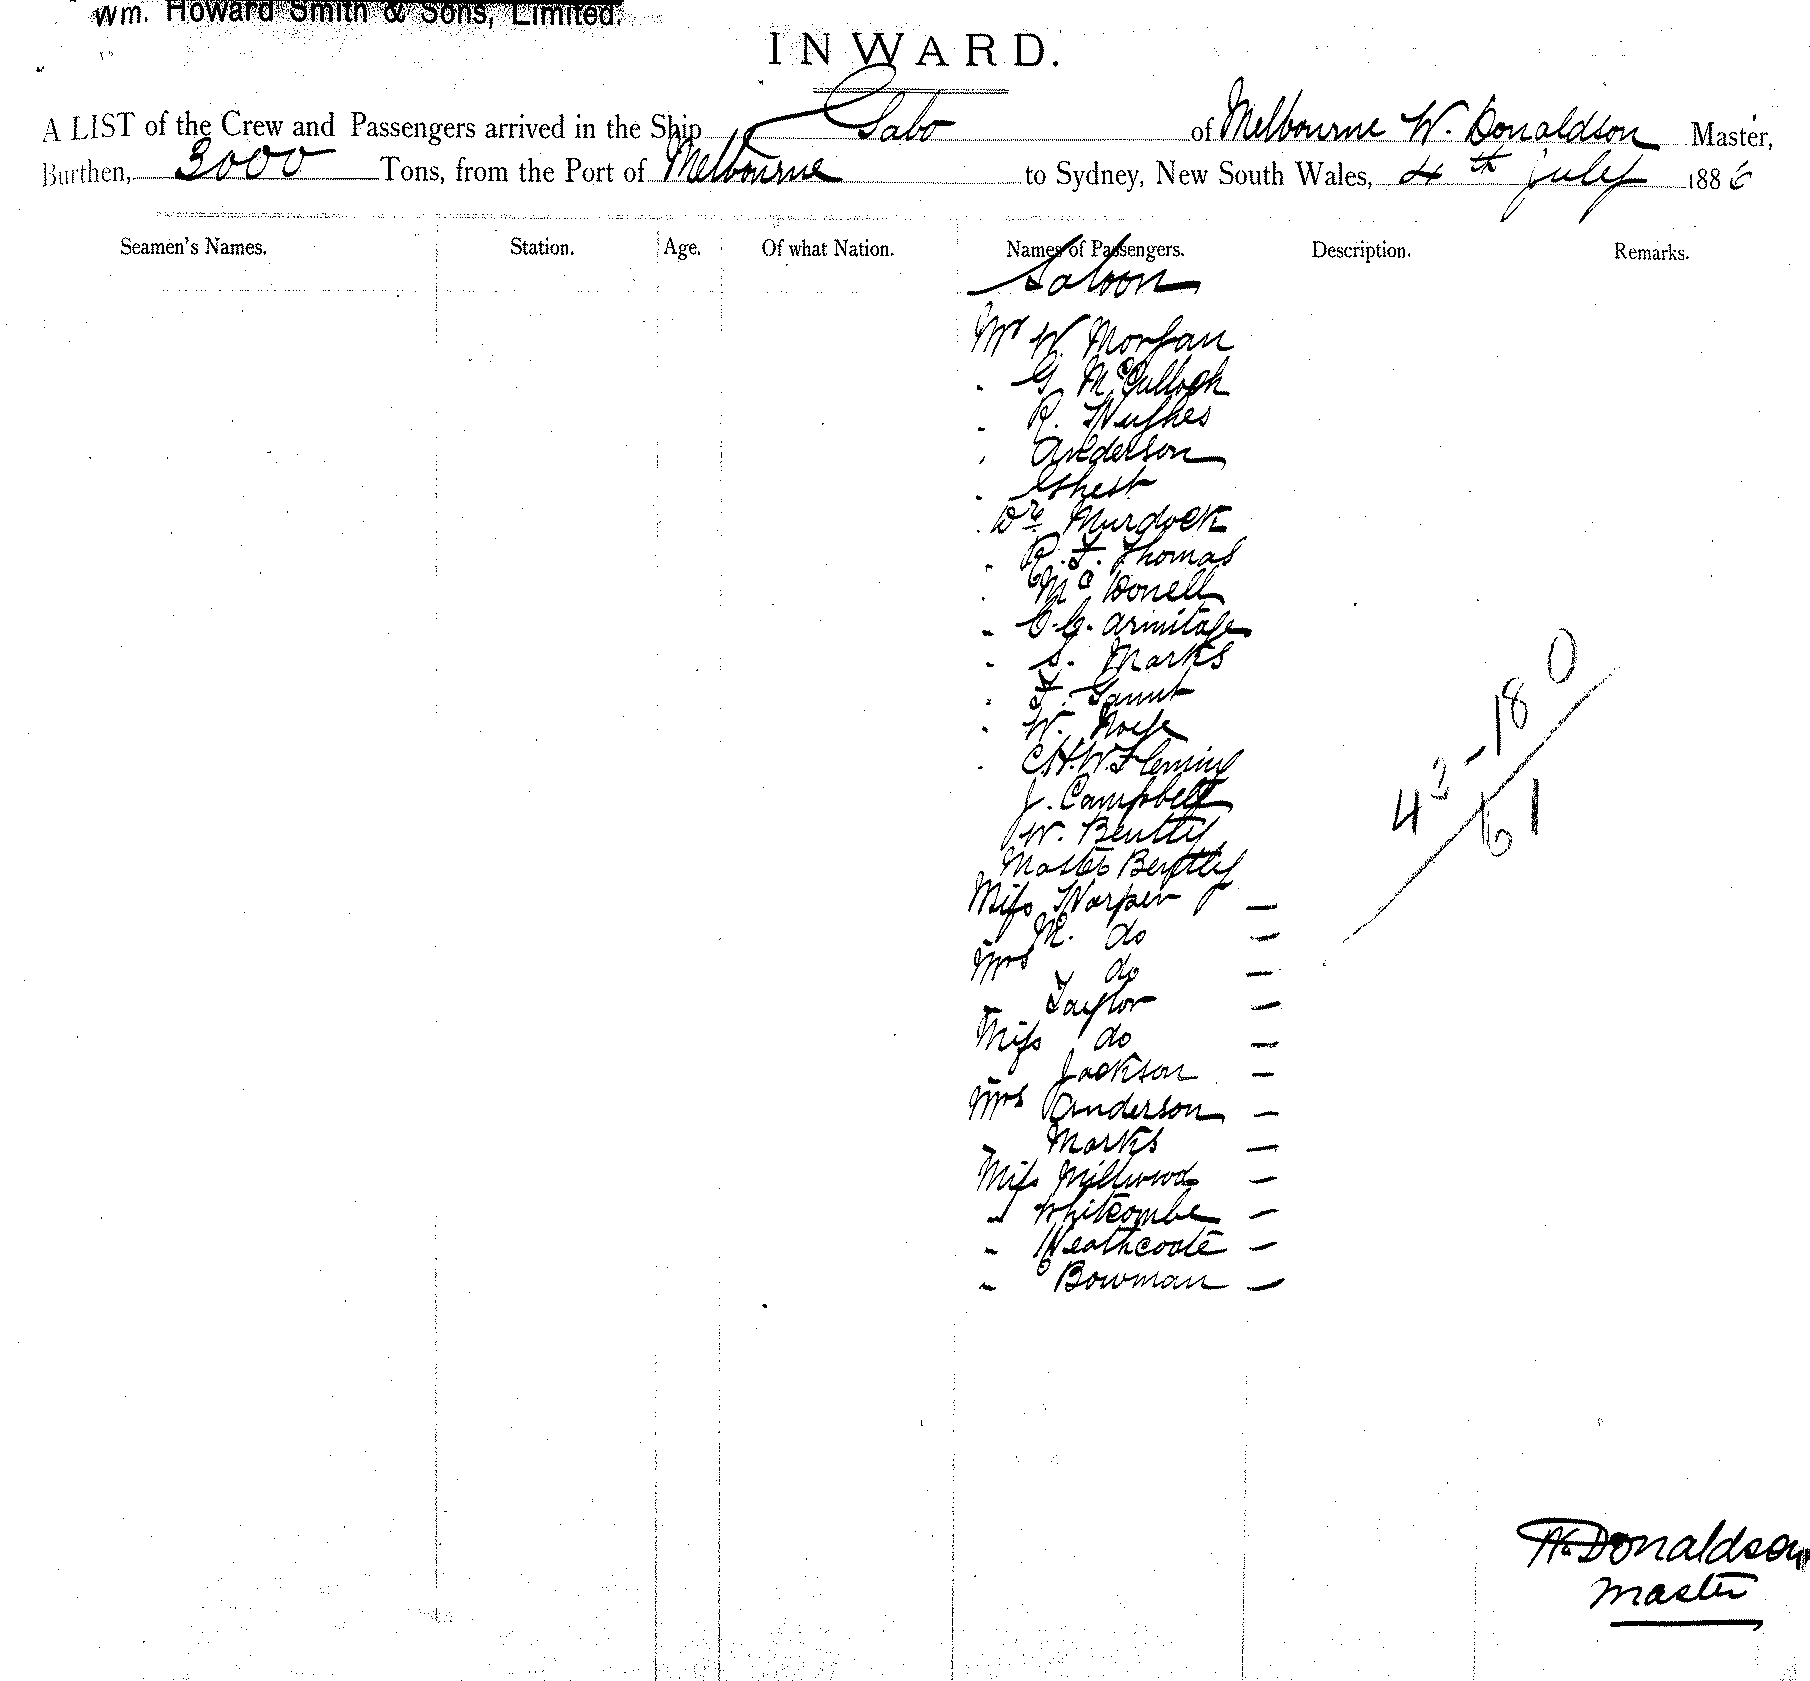 Wm. Howard Smith & Sons, Limited.
INWARD.
A LIST of the Crew and Passengers arrived in the Ship Gabo of Melbourne W. Donaldson Master,
Burthen, 3000 Tons, from the Port of Melbourne to Sydney, New South Wales, 4th July 1886
Seamen's Names. Station. Age. Of what Nation. Names of Passengers. Description. Remarks.
Saloon
Mr W. Morgan
" G McCulloch
" R. Hughes
" Anderson
" Ghest
" Dr Murdock
" R. F. Thomas
" McDonell
" C. C. Armitage
" S. Marks
" F. Gaunt
" W.
" C.H.W. Fleming
J. Campbell
W. Bently
Master Bently
Miss Harper —
M. do —
Mrs do —
" Taylor —
Miss do —
Jackson —
Mrs Anderson —
" Marks —
Miss Millwood —
" Whitcombe —
" Heathcoate —
" Bowman —
43 - 18 0
61
W. Donaldson
Master